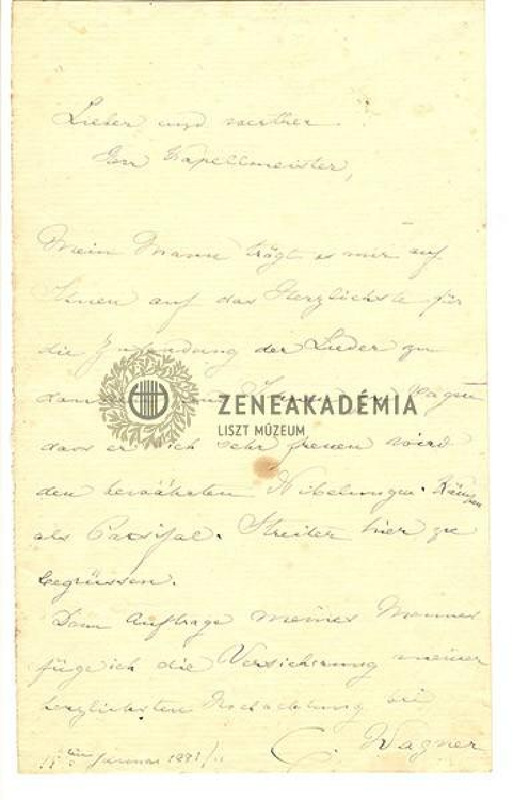 Lieber und werther
Herr Kapellmeister,
Mein Mann trägt es mir auf
Ihnen auf das Herzlichste für
die Zusendung der Lieder zu
danken und Ihnen zu sagen
ZENEAKADÉMIA
LISZT MÚZEUM
dass er sich sehr freuen wird
den bewährten Nibelungen-Kämpen
als Parsifal-Streiter hier zu
begrüssen.
Dem Auftrage meines Mannes
füge ich die Versicherung meiner
herzlichsten Hochachtung bei
C. Wagner
Januar 1881